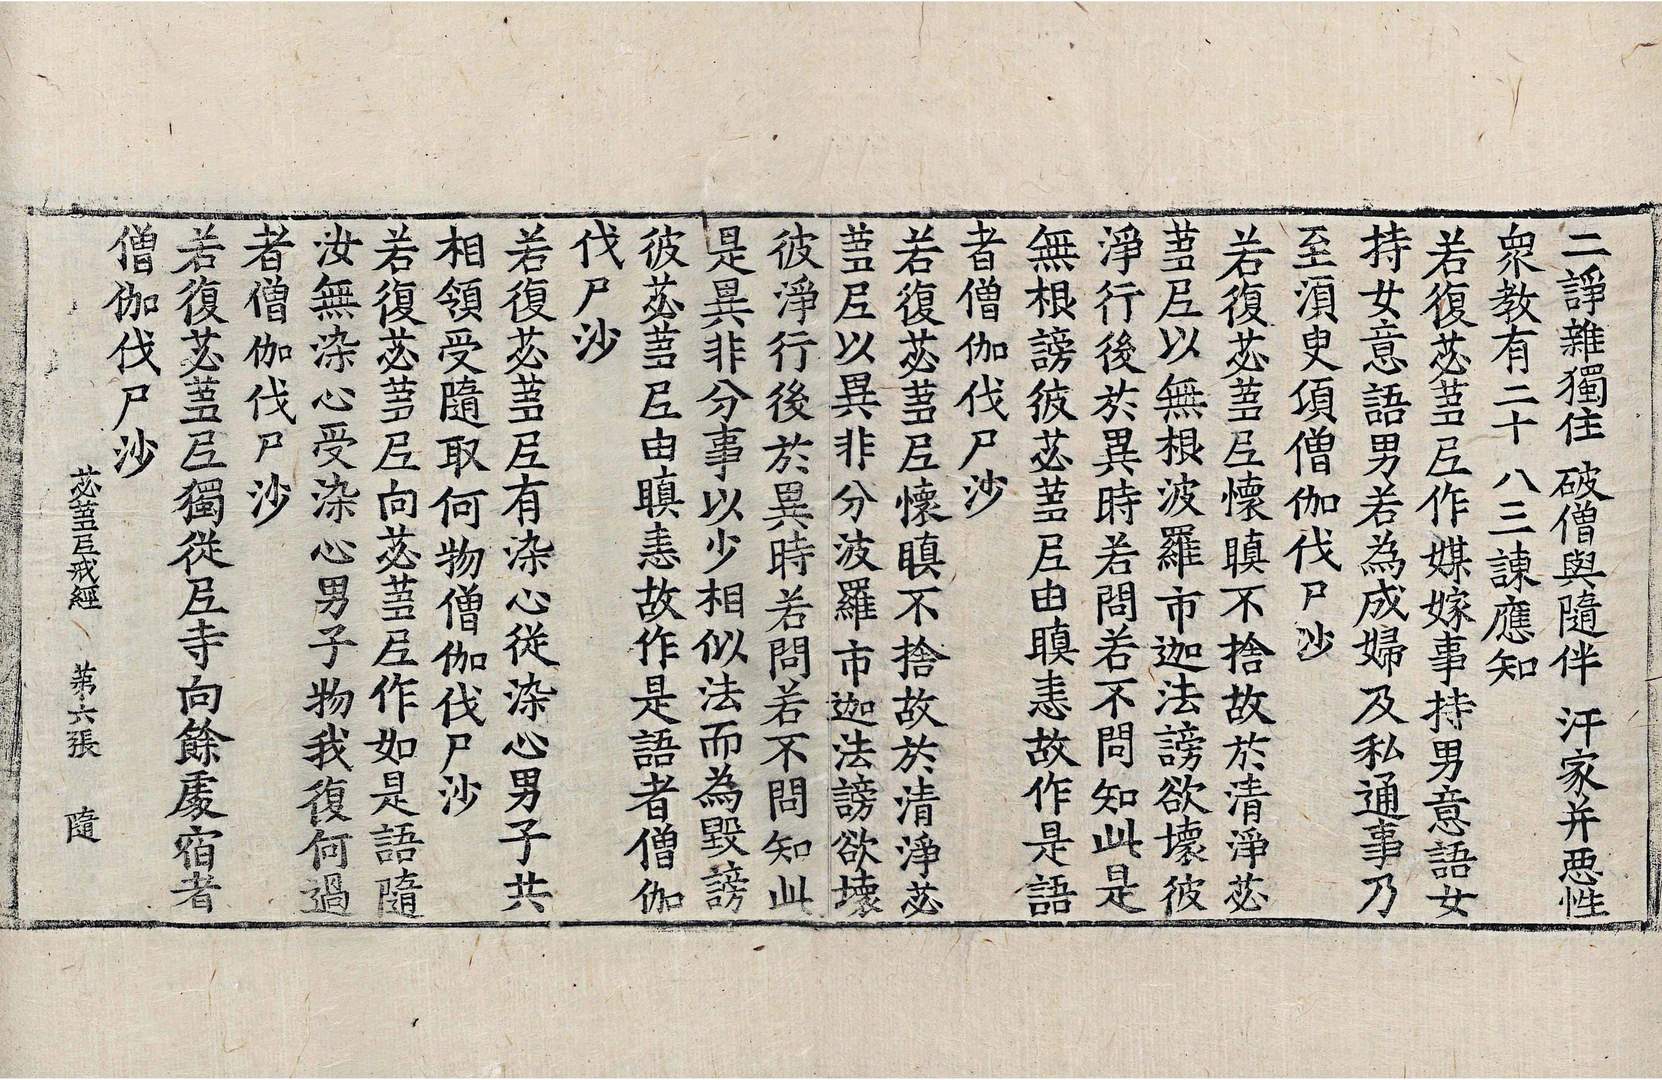 二諍雜獨住 破僧與隨伴 汙家并惡性
衆教有二十 八三諫應知
若復苾蒭尼作媒嫁事持男意語女
持女意語男若為成婦及私通事乃
至湏臾頃僧伽伐尸沙
若復苾蒭尼懷瞋不捨故於清淨苾
蒭尼以無根波羅市迦法謗欲壞彼
淨行後於異時若問若不問知此是
無根謗彼苾蒭尼由瞋恚故作是語
者僧伽伐尸沙
若復苾蒭尼懷瞋不捨故於清淨苾
蒭尼以異非分波羅市迦法謗欲壞
彼淨行後於異時若問若不問知此
是異非分事以少相似法而為毀謗
彼苾蒭尼由瞋恚故作是語者僧伽
伐尸沙
若復苾蒭尼有染心從染心男子共
相領受隨取何物僧伽伐尸沙
若復苾蒭尼向苾蒭尼作如是語隨
汝無染心受染心男子物我復何過
者僧伽伐尸沙
若復苾蒭尼獨從尼寺向餘處宿者
僧伽伐尸沙
苾蒭尼戒經 第六張 隨